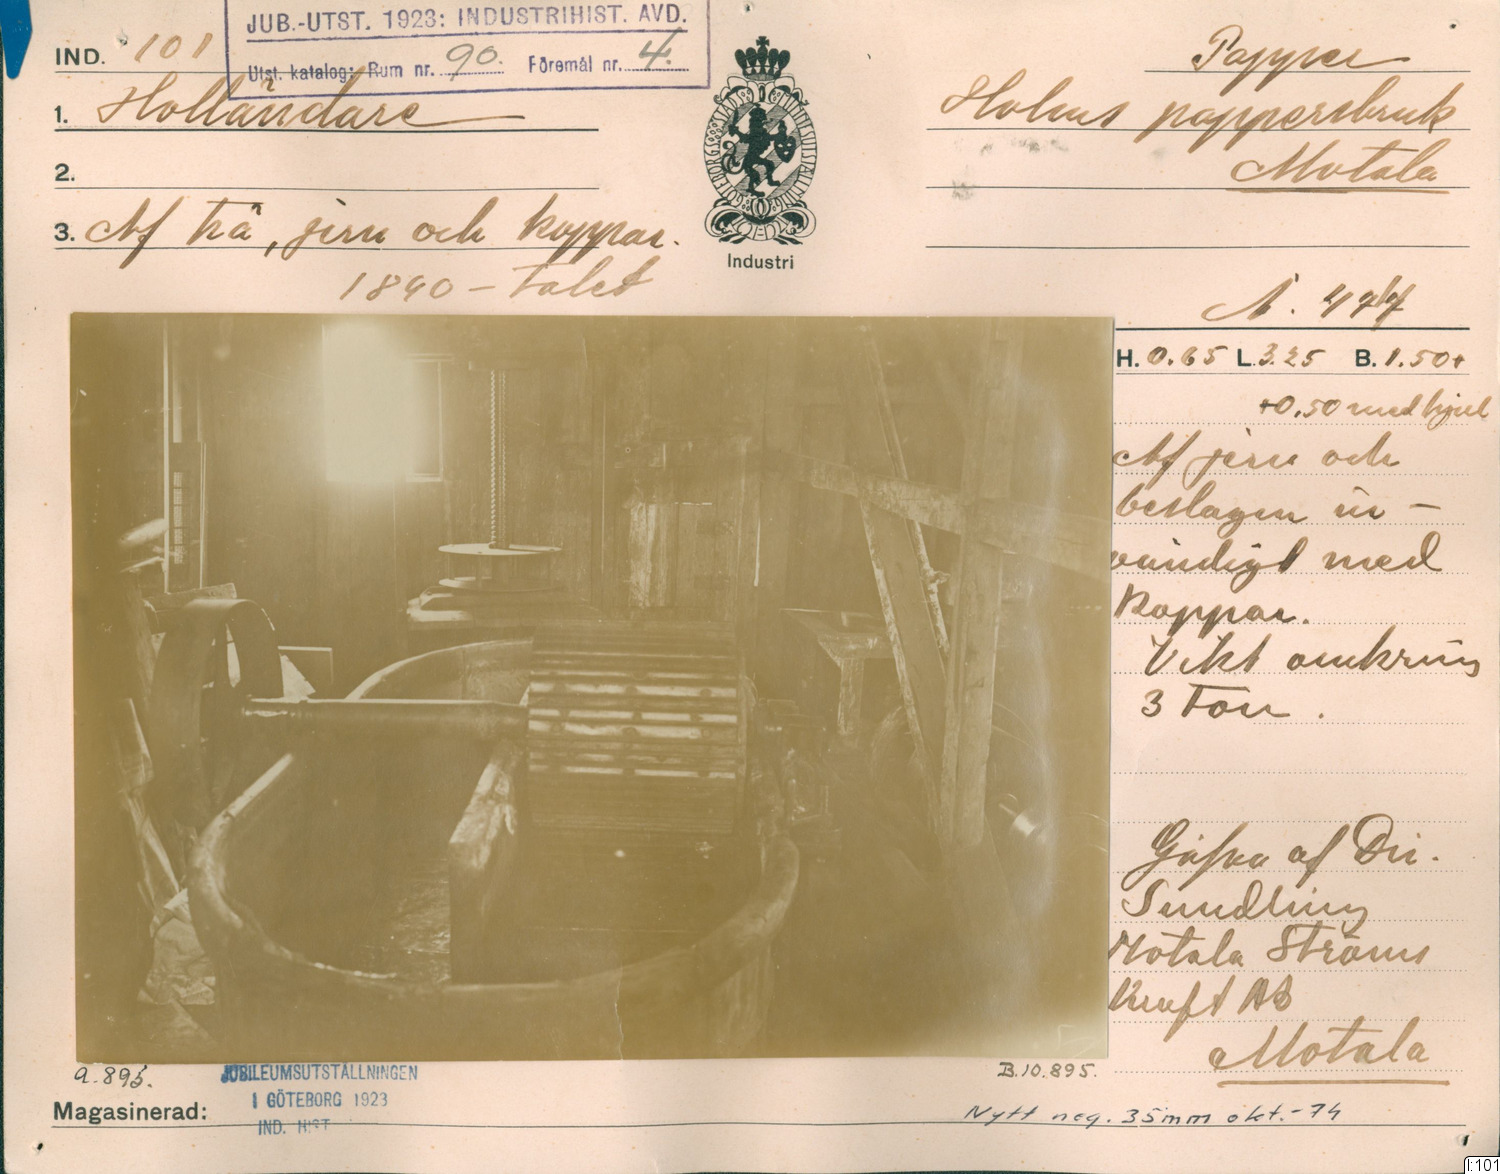 JUB.-UTST. 1923: INDUSTRIHIST. AVD.
Utst. katalog: Rum nr. 90. Föremål nr. 4.
IND. 101
1. Holländare
2.
3. Af trä, jern och koppar.
1840-talet
GÖTEBORGS STADS JUBILEUMSUTSTÄLLNING
Industri
Papper
Holms pappersbruk
Motala
H. 0.65 L. 3.25 B. 1.50+
+0,50 med hjul
Af jern och
beslagen in-
vändigt med
Koppar.
Vikt omkring
3 Ton.
Gåfva af Dir.
Sundling
Motala Ströms
Kraft AB
Motala
a.895.
B.10.895.
JUBILEUMSUTSTÄLLNINGEN
I GÖTEBORG 1923
IND. HIST
Magasinerad:
Nytt neg. 35mm okt.-74
I:101